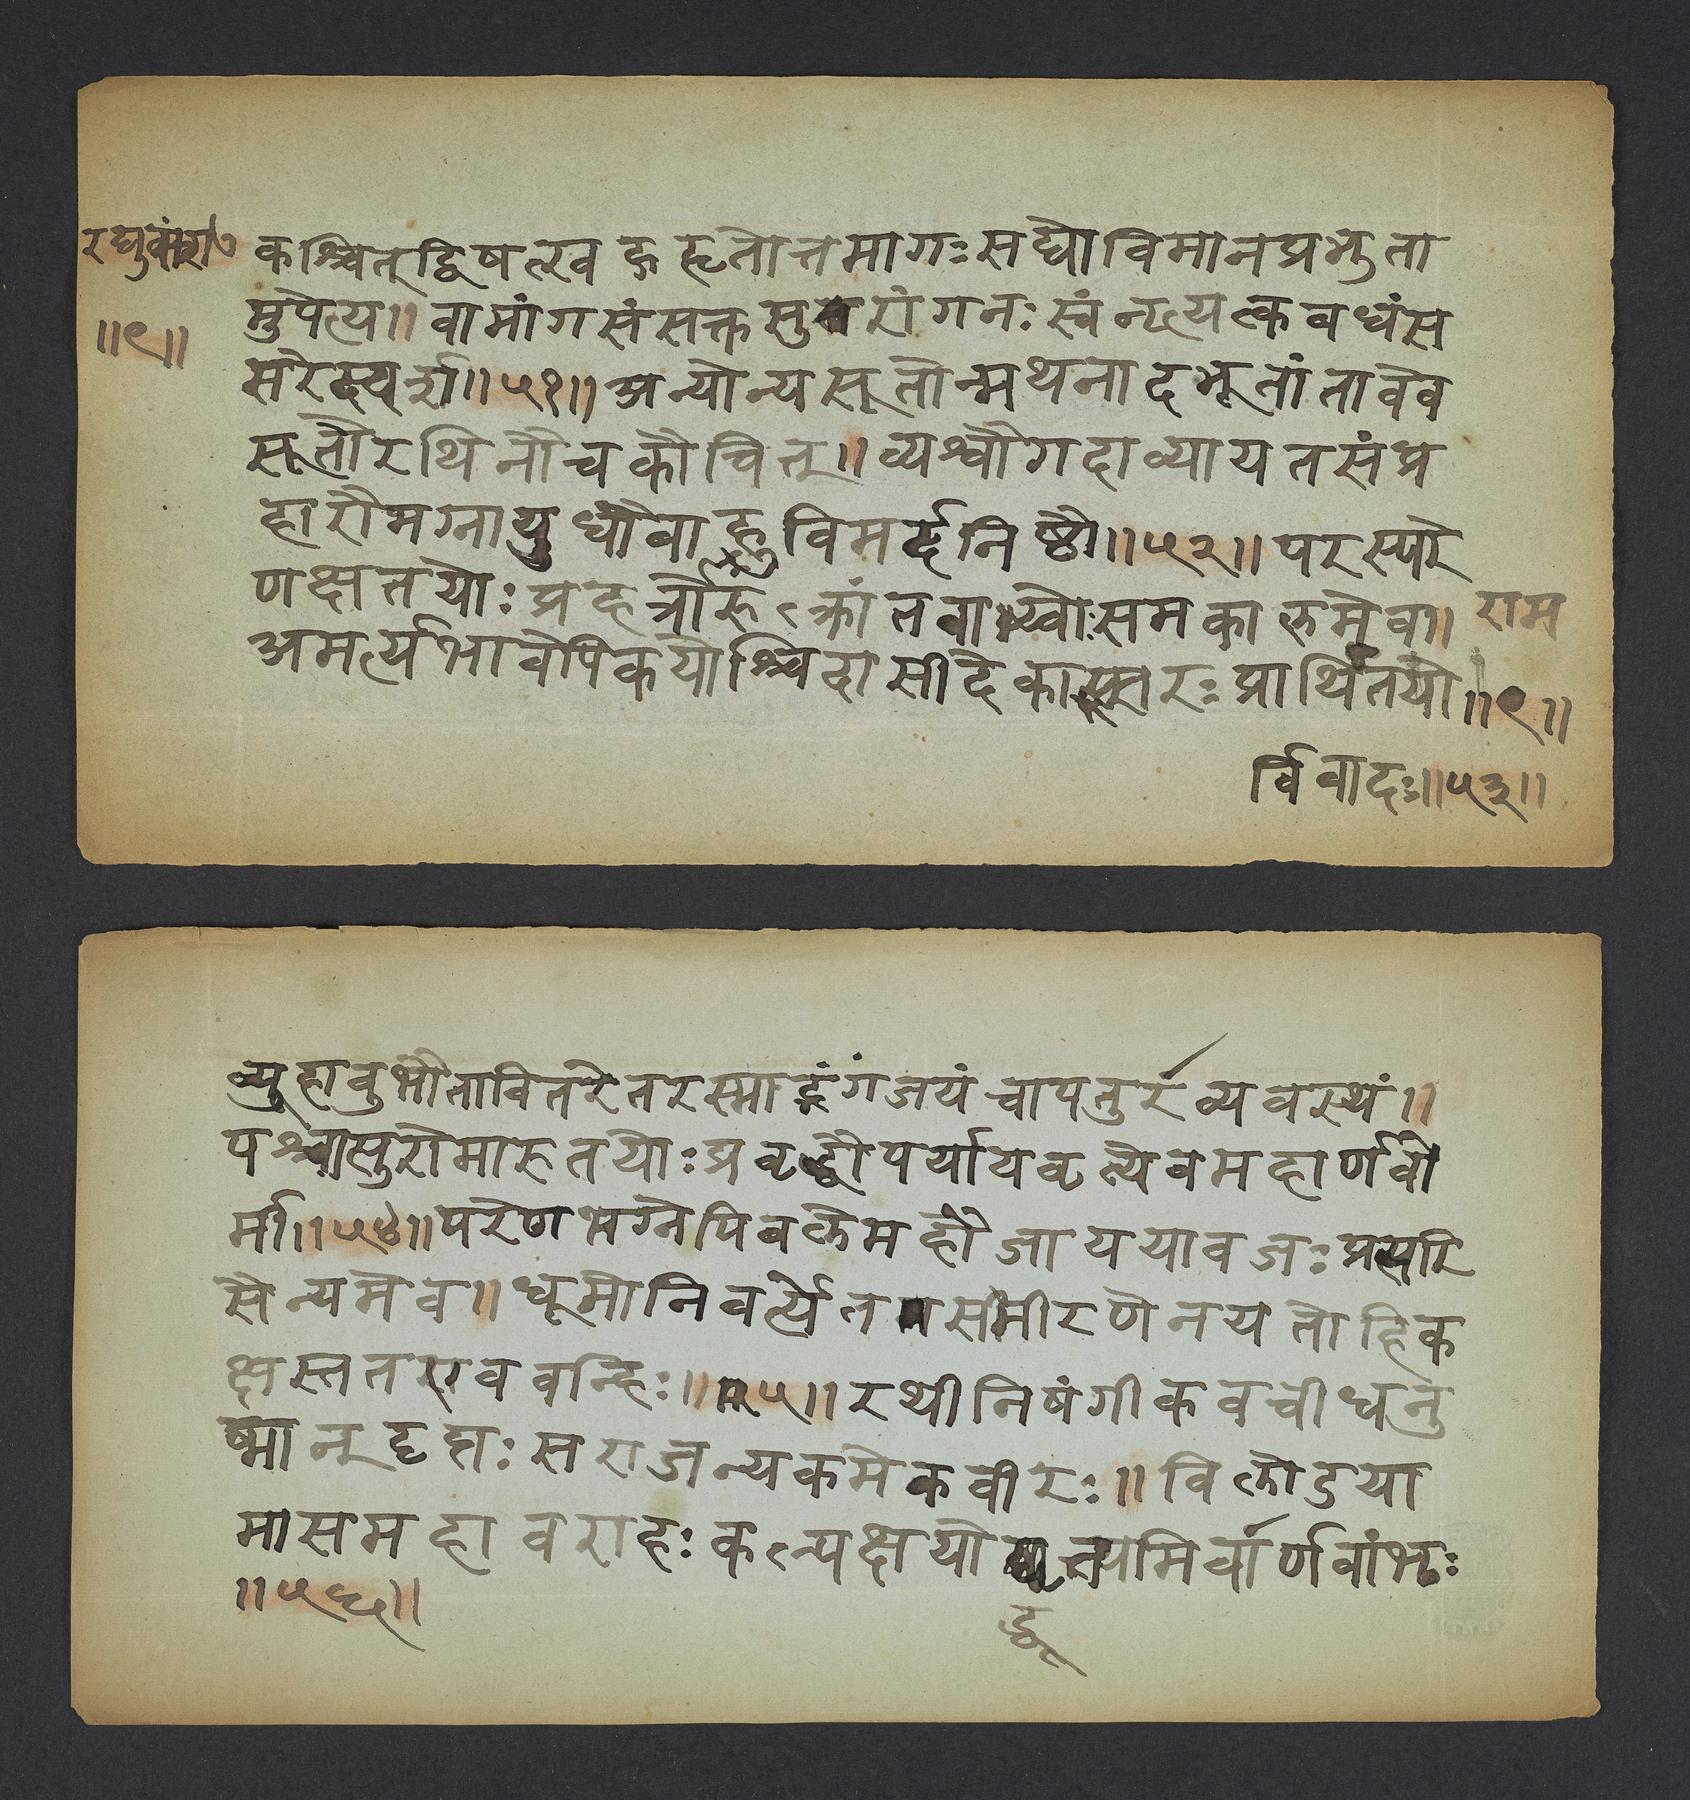 रघुवंश७
॥९॥
कश्चित्द्विषत्खड्गहृतोत्तमागः सद्योविमानप्रभुता
मुपेत्य॥ वामांगसंसक्तसुरांगनः स्वंनृत्यत्कवधंस
मरेददर्श॥५१॥ अन्योन्यसूतोन्मथनादभूतांतावेव
सूतौरथिनौचकौचित्॥ व्यश्वौगदाव्यायतसंप्र
हारौमग्नायुधौबाहुविमर्दनिष्ठौ॥५२॥ परस्परे
णक्षतयोः प्रहर्त्रोरुत्क्रांतवाय्वोःसमकालमेव॥
अमर्त्यभावेपिकयोश्चिदासीदेकाप्सरः प्रार्थितयो
र्विवादः॥५३॥
राम
॥९॥
व्यूहावुभौतावितरेतरस्माद्भंगंजयंचापतुरव्यवस्थं॥
पश्चात्पुरोमारुतयोः प्रवृद्धौपर्यायवृत्येवमहार्णवो
र्मी॥५४॥ परेणभग्नेपिबलेमहौजाययावजः प्रत्यरि
सैन्यमेव॥ धूमोनिवर्त्येतसमीरणेनयतोहिक
क्षस्ततएववन्हिः॥५५॥ रथीनिषंगीकवचीधनु
ष्मान्दृप्तः सराजन्यकमेकवीरः॥ विलोडया
मासमहावराहः कल्पक्षयोद्वृत्तमिवार्णवांभः
॥५६॥
द्वृ